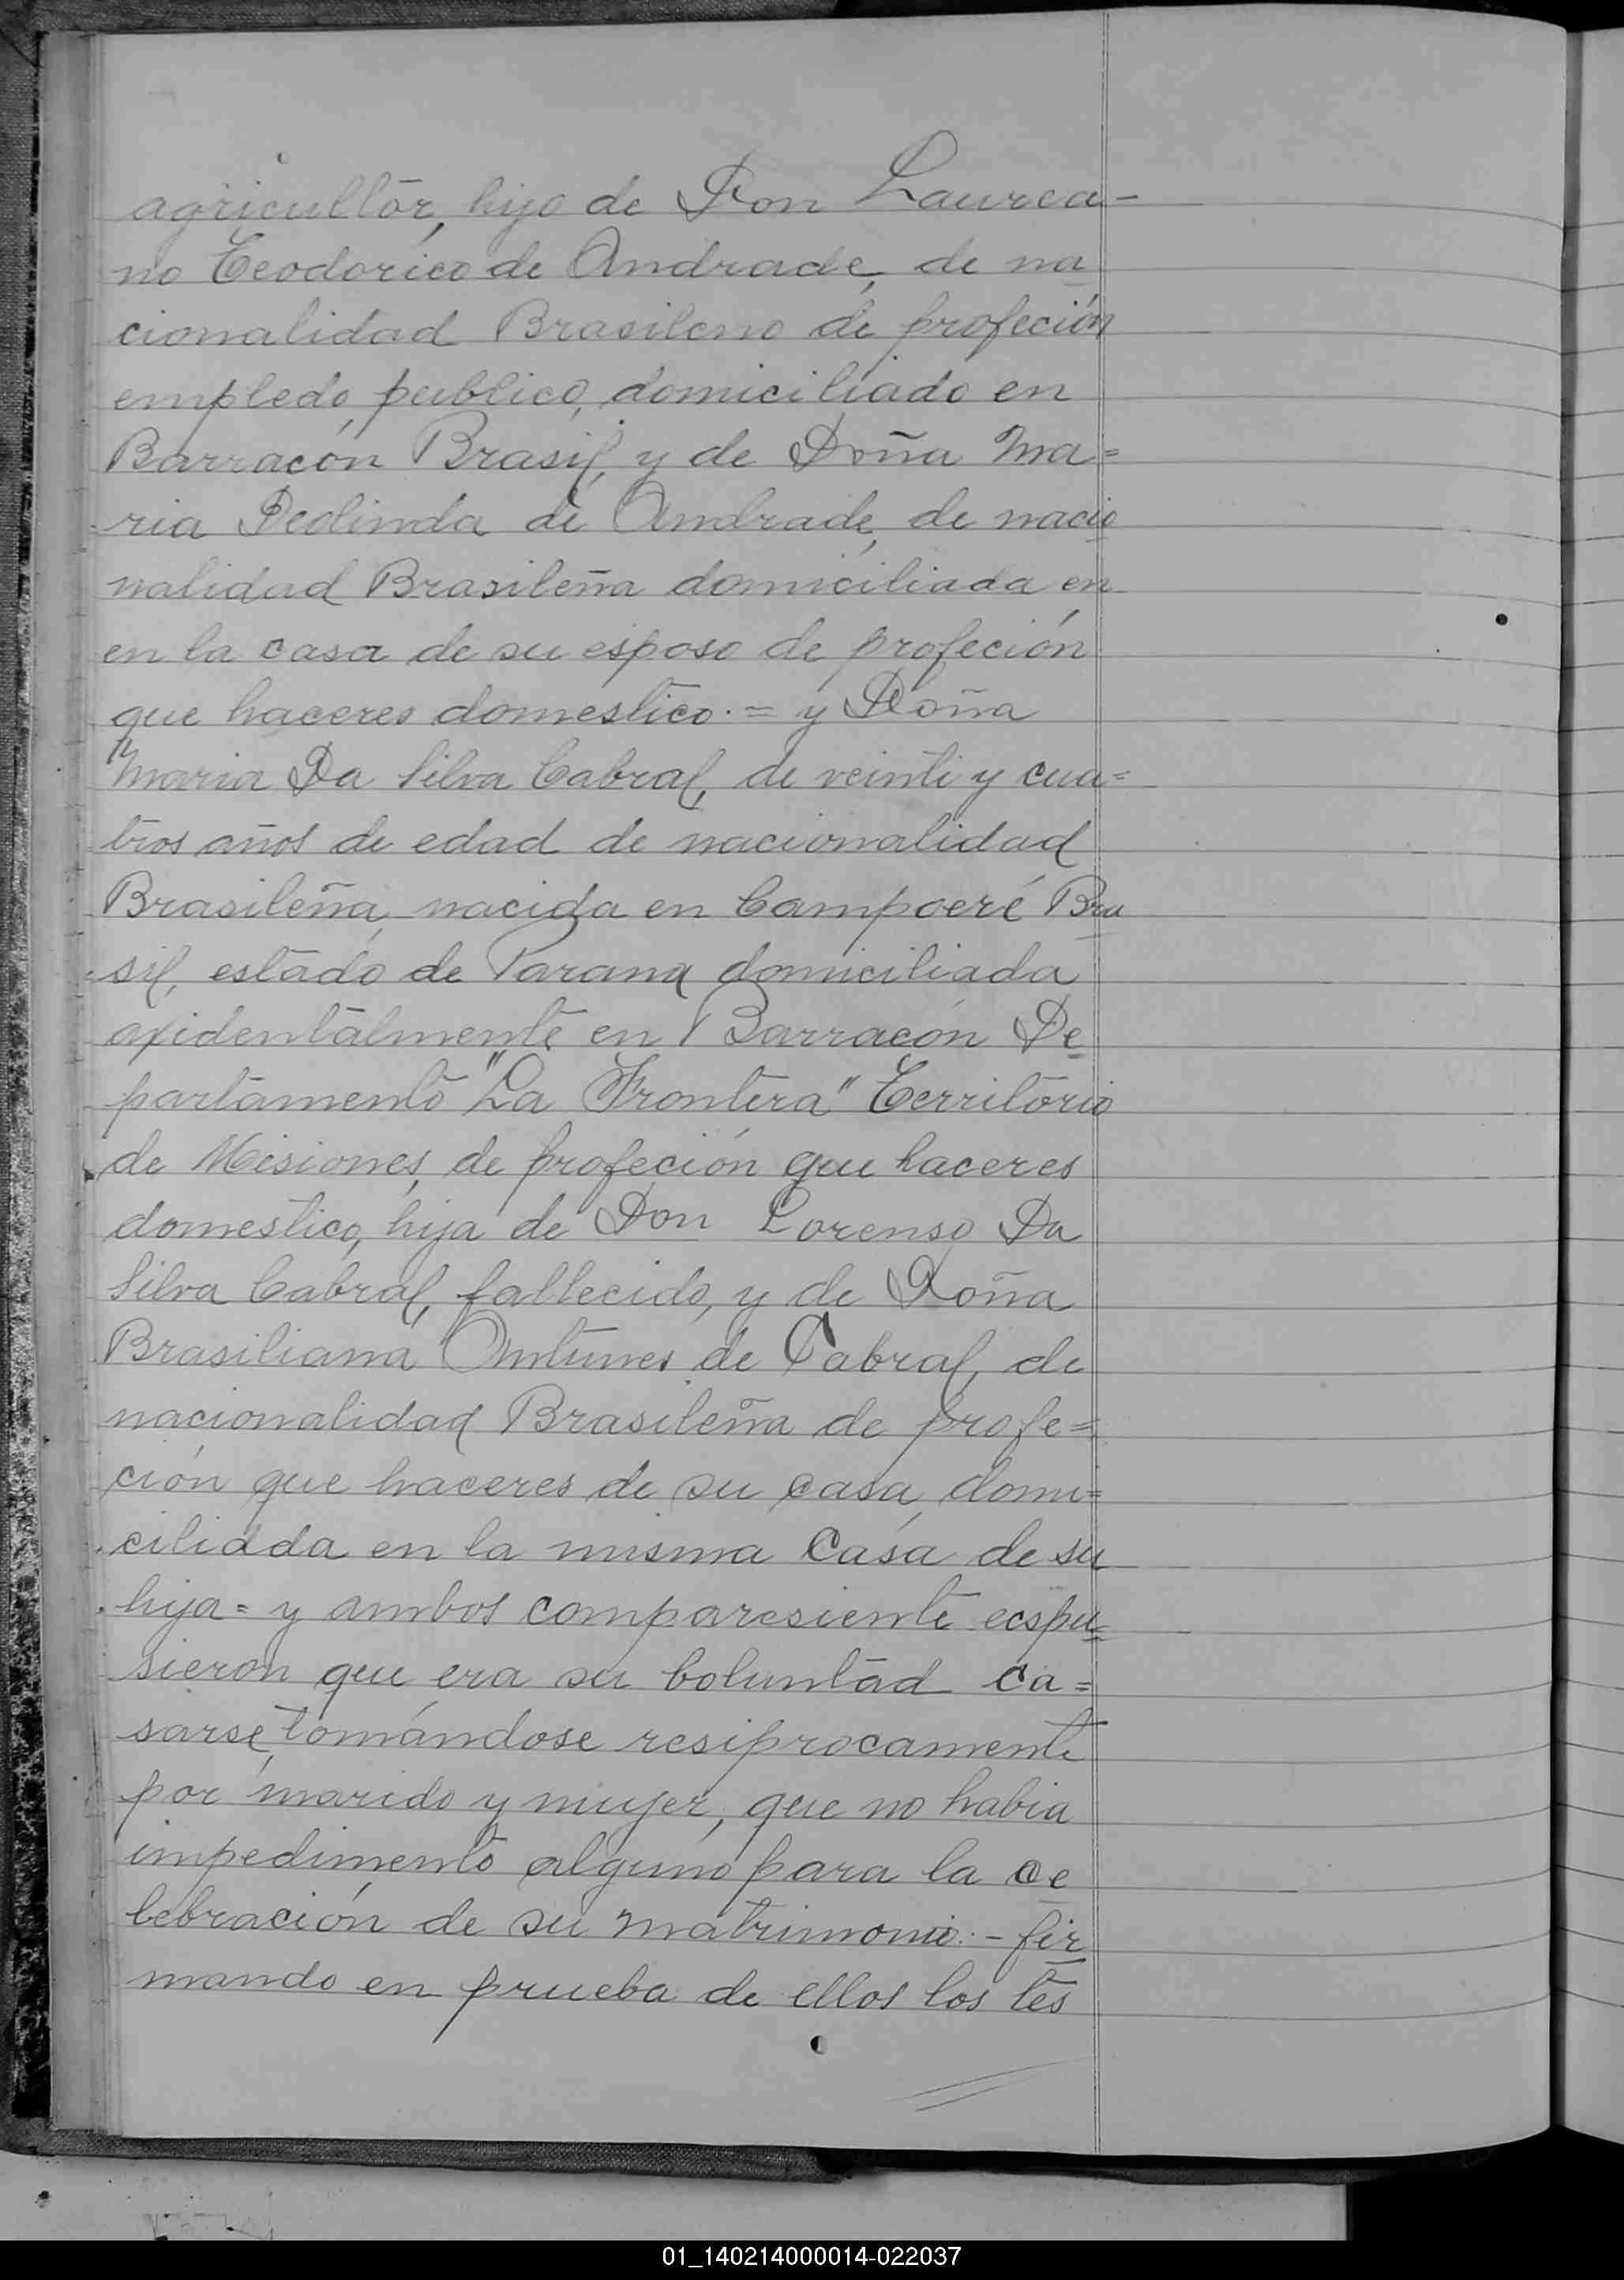 agricultor, hijo de Don Laurea-
no Teodorico de Andrade, de na
cionalidad Brasileno de profeción
empledo publico, domiciliado en
Barracón Brasil, y de Doña Ma=
ria Deolinda de Andrade, de nacio
nalidad Brasileña domiciliada en
en la casa de su esposo de profeción
que haceres domestico.= y Doña
Maria Da Silva Cabral, de veinti y cua=
tros años de edad de nacionalidad
Brasileña, nacida en Campoeré Bra
sil, estado de Parana domiciliada
axidentalmente en Barracón De
partamento "La Frontera" Territorio
de Misiones, de profeción que haceres
domestico, hija de Don Lorenso Da
Silva Cabral, fallecido, y de Doña
Brasiliana Antunes de Cabral, de
nacionalidad Brasileña de profe=
ción que haceres de su casa, domi=
ciliada en la misma Casa de su
hija= y ambos comparesiente ecspu=
sieron que era su boluntad ca=
sarse, tomándose resiprocamente
por marido y mujer, que no habia
impedimento alguno para la ce
lebración de su matrimonio:- fir
mando en prueba de ellos los tes
01_140214000014-022037